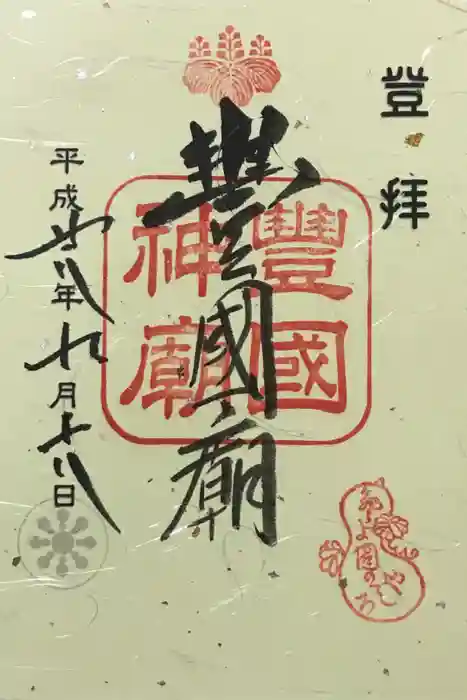 登拝
豐國廟
豐國
神廟
平成廿八年九月十八日